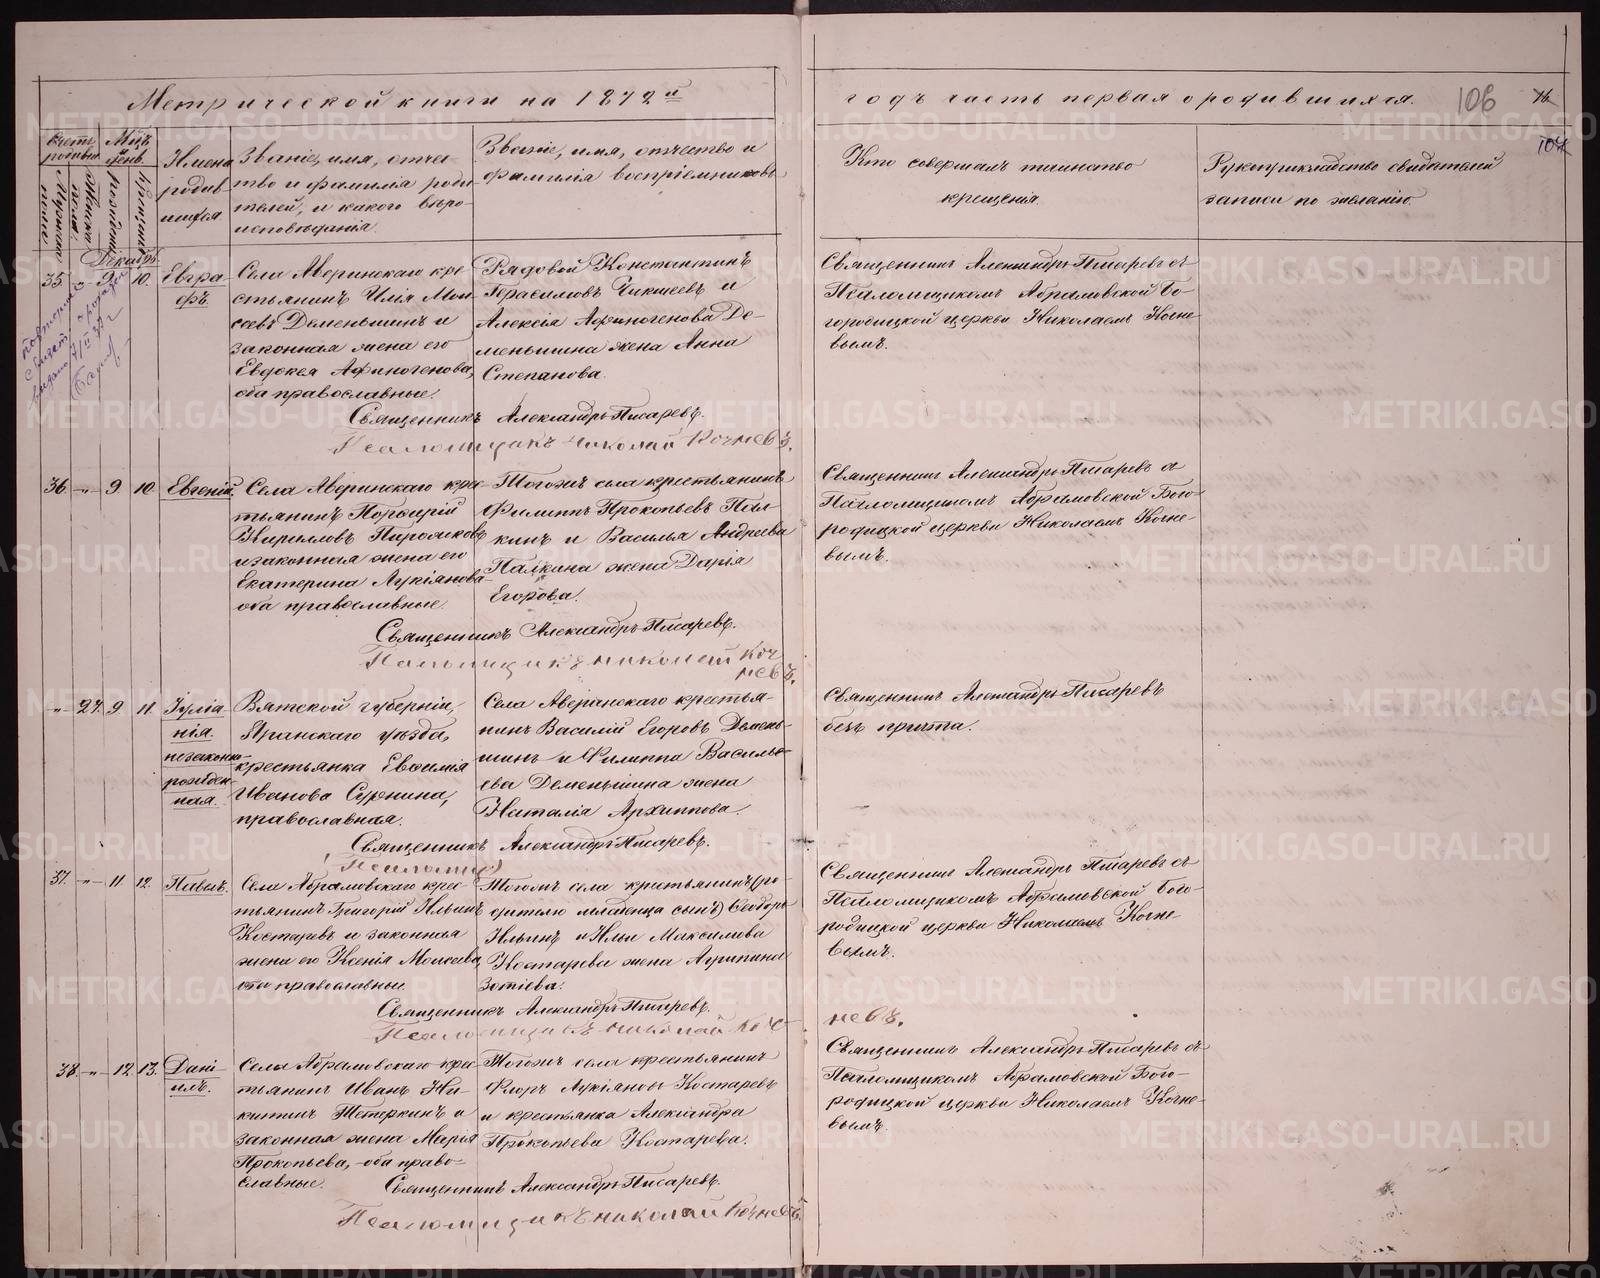 Метрической книги на 1872й
годъ часть первая о родившихся.
106
Счетъ родивш.
Мцъ. День.
Имена родив-
шихся.
Званіе, имя, отче-
ство и фамилія роди-
телей, и какого вѣро-
исповѣданія.
Званіе, имя, отчество и
фамилія воспріемниковъ
Кто совершалъ таинство
крещенія.
Рукоприкладство свидѣтелей
записи по желанію.
Декабрь
35. " 9 10.
Евгра-
фъ.
Села Аверинскаго кре-
стьянинъ Илія Мои-
сеевъ Деменьшинъ и
законная жена его
Евдокея Афиногенова,
оба православные.
Рядовой Константинъ
Герасимовъ Чикшеевъ и
Алексія Афиногенова Де-
меньшина жена Анна
Степанова.
Священникъ Александръ Писаревъ съ
Псаломщикомъ Абрамовской Бо-
городицкой церкви Николаемъ Кочне-
вымъ.
Священникъ Александръ Писаревъ.
Псаломщикъ Николай Кочневъ.
36. " 9 10.
Евгеній.
Села Аверинскаго кре-
стьянинъ Порфирій
законная жена его
Екатерина Лукіянова
оба православные.
Тогожъ села крестьянинъ
Филиппъ Прокопьевъ Пал-
кинъ и Василья Андреева
Палкина жена Дарія
Егорова.
Священникъ Александръ Писаревъ съ
Псаломщикомъ Абрамовской Бого-
родицкой церкви Николаемъ Кочне-
вымъ.
Священникъ Александръ Писаревъ.
Псаломщикъ Николай Коч
невъ.
" 27. 9. 11.
Іуліа-
нія.
незаконно-
рожден-
ная.
Вятской губерніи,
Яранскаго уѣзда,
крестьянка Евфимія
Иванова
православная.
Села Аверинскаго крестья-
нинъ Василій Егоровъ Демень-
шинъ и Филиппа Василь-
ева Деменьшина жена
Наталія Архиппова.
Священникъ Александръ Писаревъ
безъ причта.
Священникъ Александръ Писаревъ.
37. " 11. 12.
Павелъ.
Села Абрамовскаго крес-
тьянинъ Григорій Ильинъ
Костаревъ и законная
жена его Ксенія Моисеева,
оба православные.
Тогожъ села крестьянинъ (ро-
дителю младенца сынъ) Феодоръ
Ильинъ и Ильи Максимова
Костарева жена Агрипина
Зотіева.
Священникъ Александръ Писаревъ съ
Псаломщикомъ Абрамовской Бого-
родицкой церкви Николаемъ Кочне-
вымъ.
Священникъ Александръ Писаревъ.
Псаломщикъ Николай Коч-
невъ.
38. " 12. 13.
Дані-
илъ.
Села Абрамовскаго кре-
стьянинъ Иванъ Ни-
китинъ Тетеркинъ и
законная жена Марія
Прокопьева, оба право-
славные.
Тогожъ села крестьянинъ
Флоръ Лукіяновъ Костаревъ
и крестьянка Александра
Прокопьева Костарева.
Священникъ Александръ Писаревъ съ
Псаломщикомъ Абрамовской Бого-
родицкой церкви Николаемъ Кочне-
вымъ.
Священникъ Александръ Писаревъ.
Псаломщикъ Николай Кочневъ.
METRIKI.GASO-URAL.RU